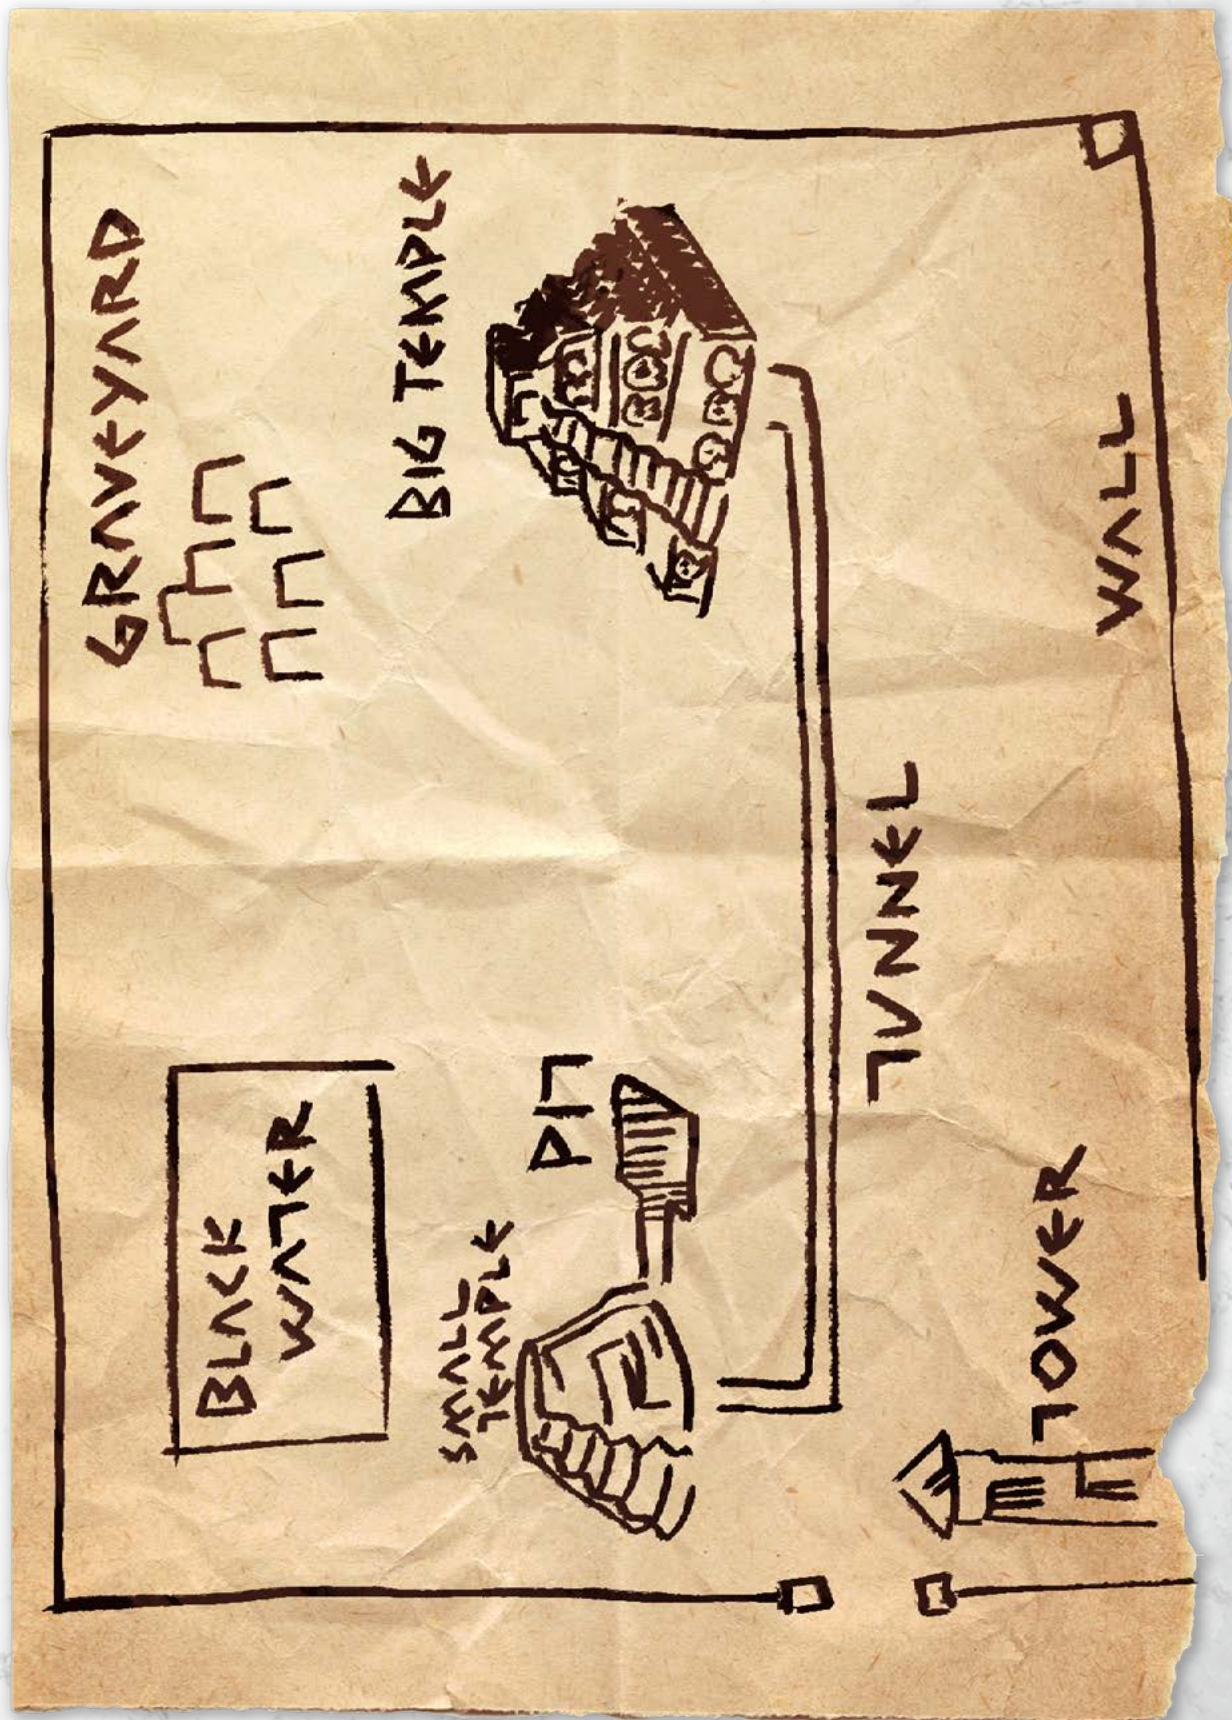 GRAVEYARD
BIG TEMPLE
BLACK
WATER
SMALL
TEMPLE
PIT
TUNNEL
WALL
TOWER